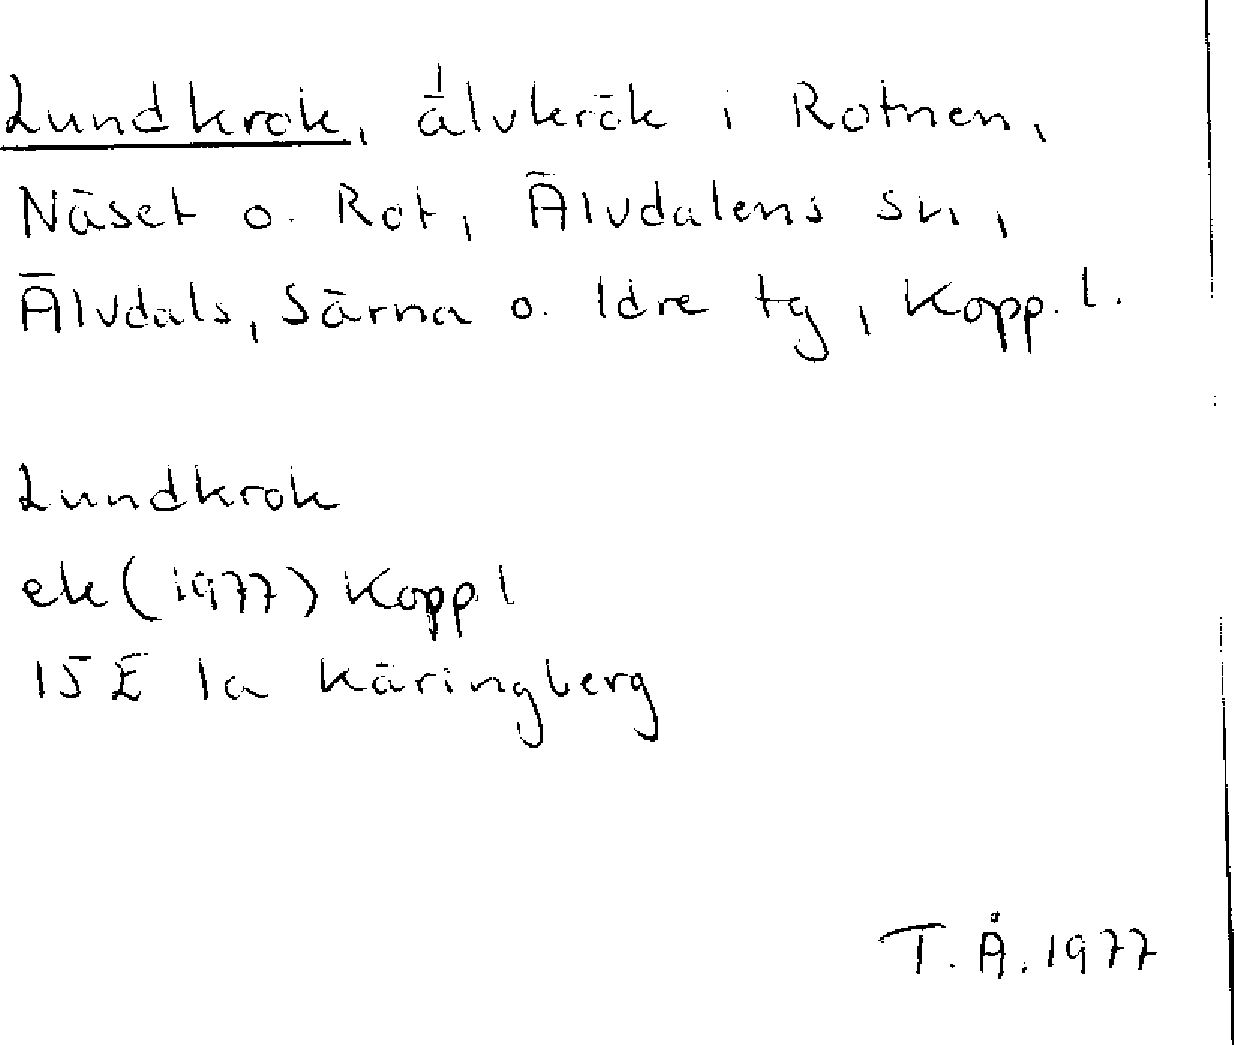 Lundkrok, älvkrök i Rotnen,
Näset o. Rot, Älvdalens sn,
Älvdals, Särna o. Idre tg, Kopp. l.
Lundkrok
ek (1977) Kopp l
15E 1a Käringberg
T. Å. 1977